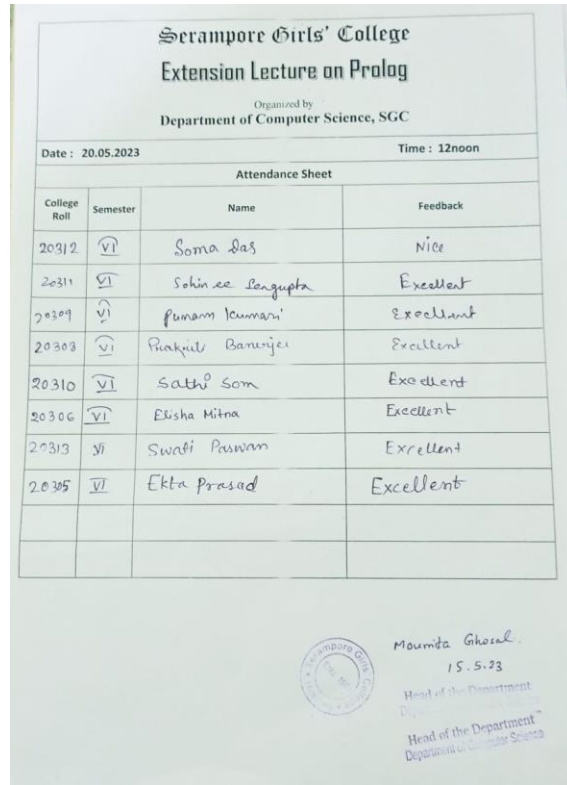 Serampore Girls' College
Extension Lecture on Prolog
Organized by
Department of Computer Science, SGC
Date : 20.05.2023 Time : 12noon
Attendance Sheet
College Roll Semester Name Feedback
20312 VI Soma Das Nice
20311 VI Sohinee Sengupta Excellent
20309 VI Punam Kumari Excellent
20303 VI Banerjee Excellent
20310 VI Sathi Som Excellent
20306 VI Elisha Mitra Excellent
20313 VI Swati Paswan Excellent
20305 VI Ekta Prasad Excellent
Moumita Ghosal.
15.5.23
Serampore Girls' College
Head of the Department
Head of the Department
Department of Computer Science